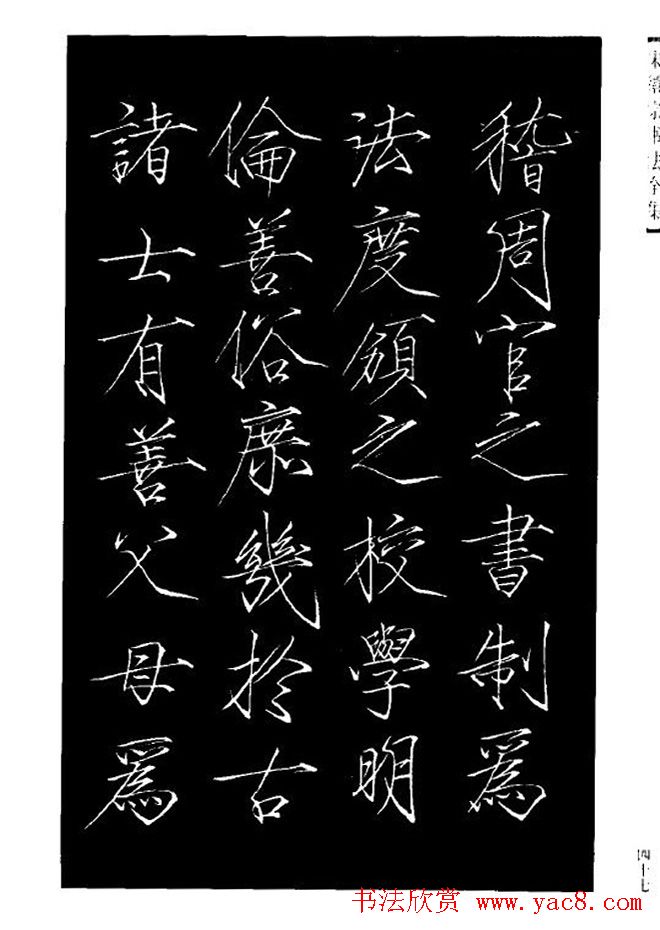 稽周官之書制爲
法度頒之校學明
倫善俗庶幾於古
諸士有善父母爲
四十七
书法欣赏 www.yac8.com